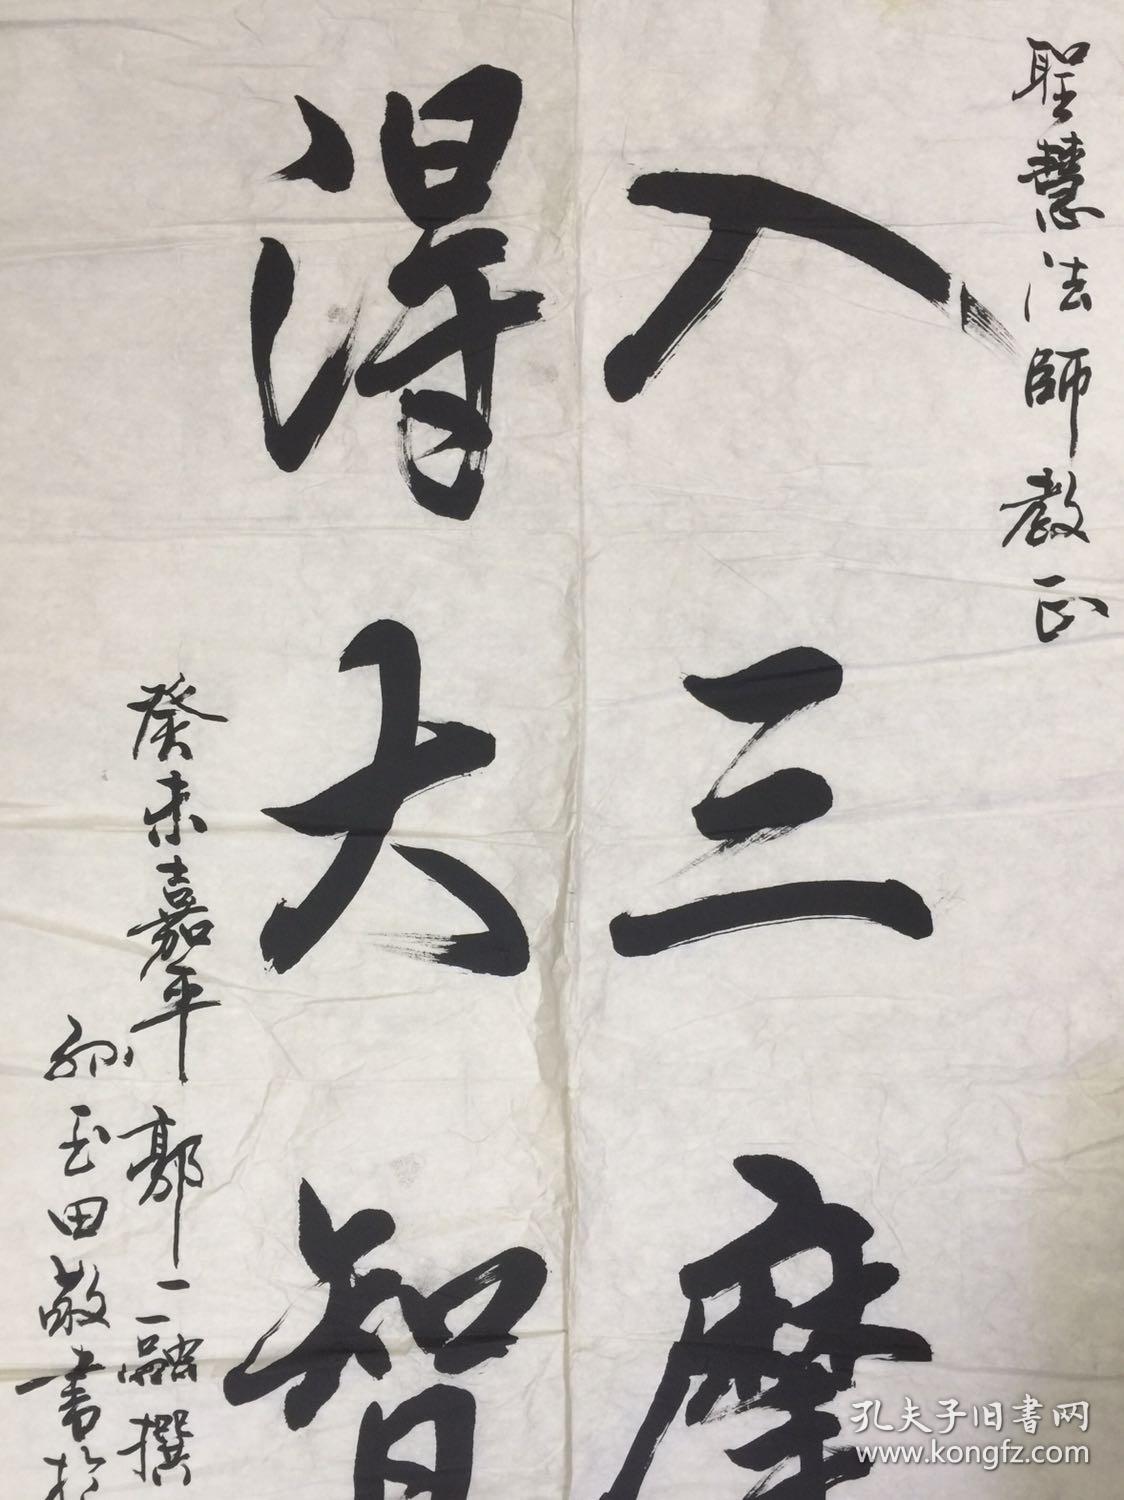 聖慧法師教正
入三摩
得大智
癸未嘉平郭一融撰
孙玉田敬書於
孔夫子旧书网
www.kongfz.com